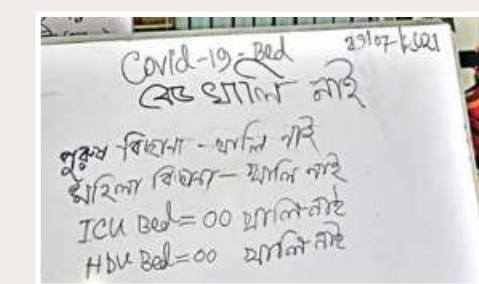 Covid-19-Bed
29/07/2021
বেড খালি নাই
পুরুষ বিছানা - খালি নাই
মহিলা বিছানা - খালি নাই
ICU Bed = 00 খালি নাই
HDU Bed = 00 খালি নাই